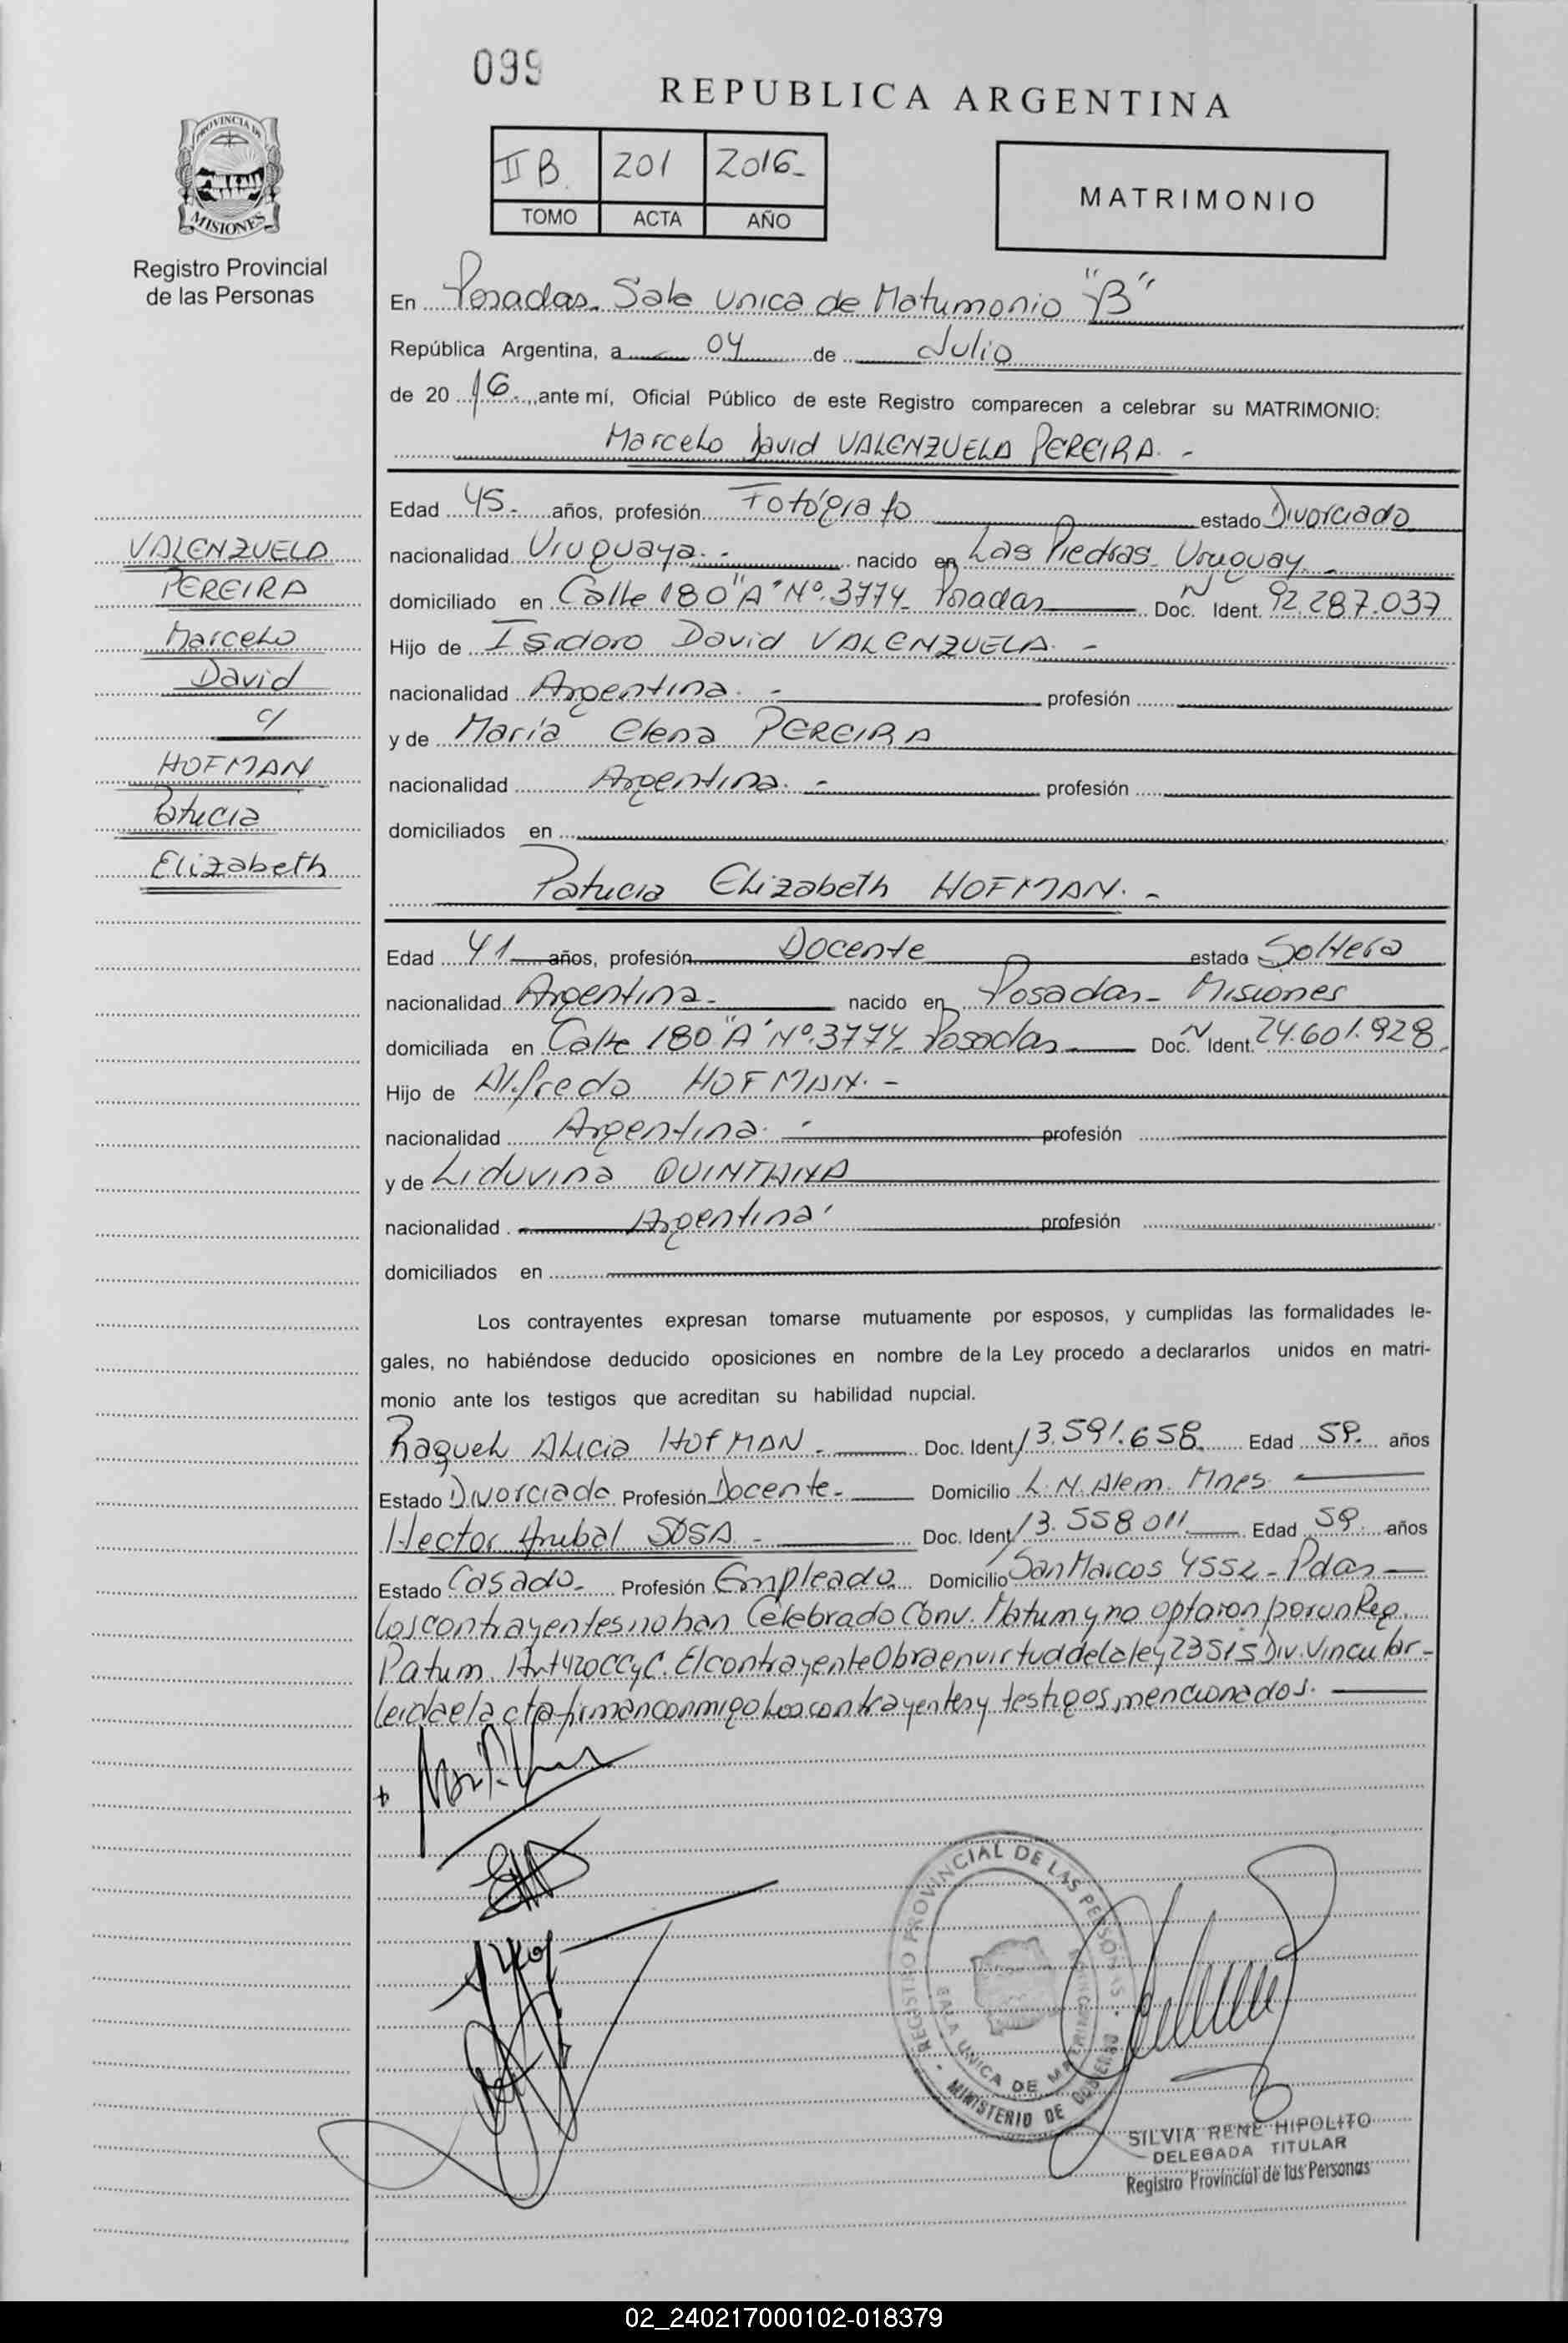 099
REPUBLICA ARGENTINA
PROVINCIA DE
MISIONES
Registro Provincial
de las Personas
II B. 201 2016-
TOMO ACTA AÑO
MATRIMONIO
En Posadas- Sala Unica de Matrimonio "B"
República Argentina, a 04 de Julio
de 20 16. ante mí, Oficial Público de este Registro comparecen a celebrar su MATRIMONIO:
Marcelo David VALENZUELA PEREIRA. -
VALENZUELA
PEREIRA
Marcelo
David
c/
HOFMAN
Patricia
Elizabeth
Edad 45- años, profesión Fotógrafo estado Divorciado
nacionalidad Uruguaya. - nacido en Las Piedras- Uruguay. -
domiciliado en Calle 180 "A" Nº 3774- Posadas Doc. N Ident. 92.287.037
Hijo de Isidoro David VALENZUELA. -
nacionalidad Argentina. - profesión
y de María Elena PEREIRA
nacionalidad Argentina. - profesión
domiciliados en
Patricia Elizabeth HOFMAN. -
Edad 41 años, profesión Docente estado Soltera
nacionalidad Argentina- nacido en Posadas- Misiones
domiciliada en Calle 180 "A" Nº 3774- Posadas Doc. N Ident. 24.601.928
Hijo de Alfredo HOFMAN. -
nacionalidad Argentina. - profesión
y de Liduvina QUINTANA
nacionalidad Argentina profesión
domiciliados en
Los contrayentes expresan tomarse mutuamente por esposos, y cumplidas las formalidades le-
gales, no habiéndose deducido oposiciones en nombre de la Ley procedo a declararlos unidos en matri-
monio ante los testigos que acreditan su habilidad nupcial.
Raquel Alicia HOFMAN. Doc. Ident. 13.591.658 Edad años
Estado Divorciada Profesión Docente- Domicilio L. N. Alem. Mnes.
Hector Anibal SOSA - Doc. Ident. 13.558.011 Edad 59 años
Estado Casado- Profesión Empleado Domicilio San Marcos 4552- Pdas
Los contrayentes no han Celebrado Conv. Matrim y no optaron por un Reg.
Patrim. Art 420 CCyC. El contrayente Obra en virtud de la ley 23515 Div. Vincular-
Leida el acta firman conmigo los contrayentes y testigos mencionados.
REGISTRO PROVINCIAL DE LAS PERSONAS
SALA UNICA DE MATRIMONIO
MINISTERIO DE GOBIERNO
SILVIA RENE HIPOLITO
DELEGADA TITULAR
Registro Provincial de las Personas
02_240217000102-018379